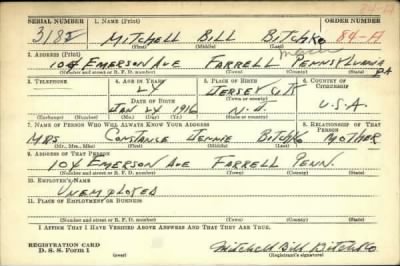 84-A
SERIAL NUMBER 1. NAME (Print) ORDER NUMBER
3182 MITCHELL BILL BITCHKO 84-A
(First) (Middle) (Last)
2. ADDRESS (Print)
104 EMERSON AVE FARRELL Mercer PENNSYLVANIA
PA
(Number and street or R. F. D. number) (Town) (County) (State)
3. TELEPHONE 4. AGE IN YEARS 5. PLACE OF BIRTH 6. COUNTRY OF CITIZENSHIP
24 JERSEY
DATE OF BIRTH (Town or county)
JAN 24 1916 N.J. U.S.A
(Exchange) (Number) (Mo.) (Day) (Yr.) (State or country)
7. NAME OF PERSON WHO WILL ALWAYS KNOW YOUR ADDRESS 8. RELATIONSHIP OF THAT PERSON
MRS CONSTANCE JENNIE BITCHKO MOTHER
(Mr., Mrs., Miss) (First) (Middle) (Last)
9. ADDRESS OF THAT PERSON
104 EMERSON AVE FARRELL PENN.
(Number and street or R. F. D. number) (Town) (County) (State)
10. EMPLOYER'S NAME
UNEMPLOYED
11. PLACE OF EMPLOYMENT OR BUSINESS
(Number and street or R. F. D. number) (Town) (County) (State)
I AFFIRM THAT I HAVE VERIFIED ABOVE ANSWERS AND THAT THEY ARE TRUE.
REGISTRATION CARD
D. S. S. Form 1 (over) Mitchell Bill Bitchko
(Registrant's signature)